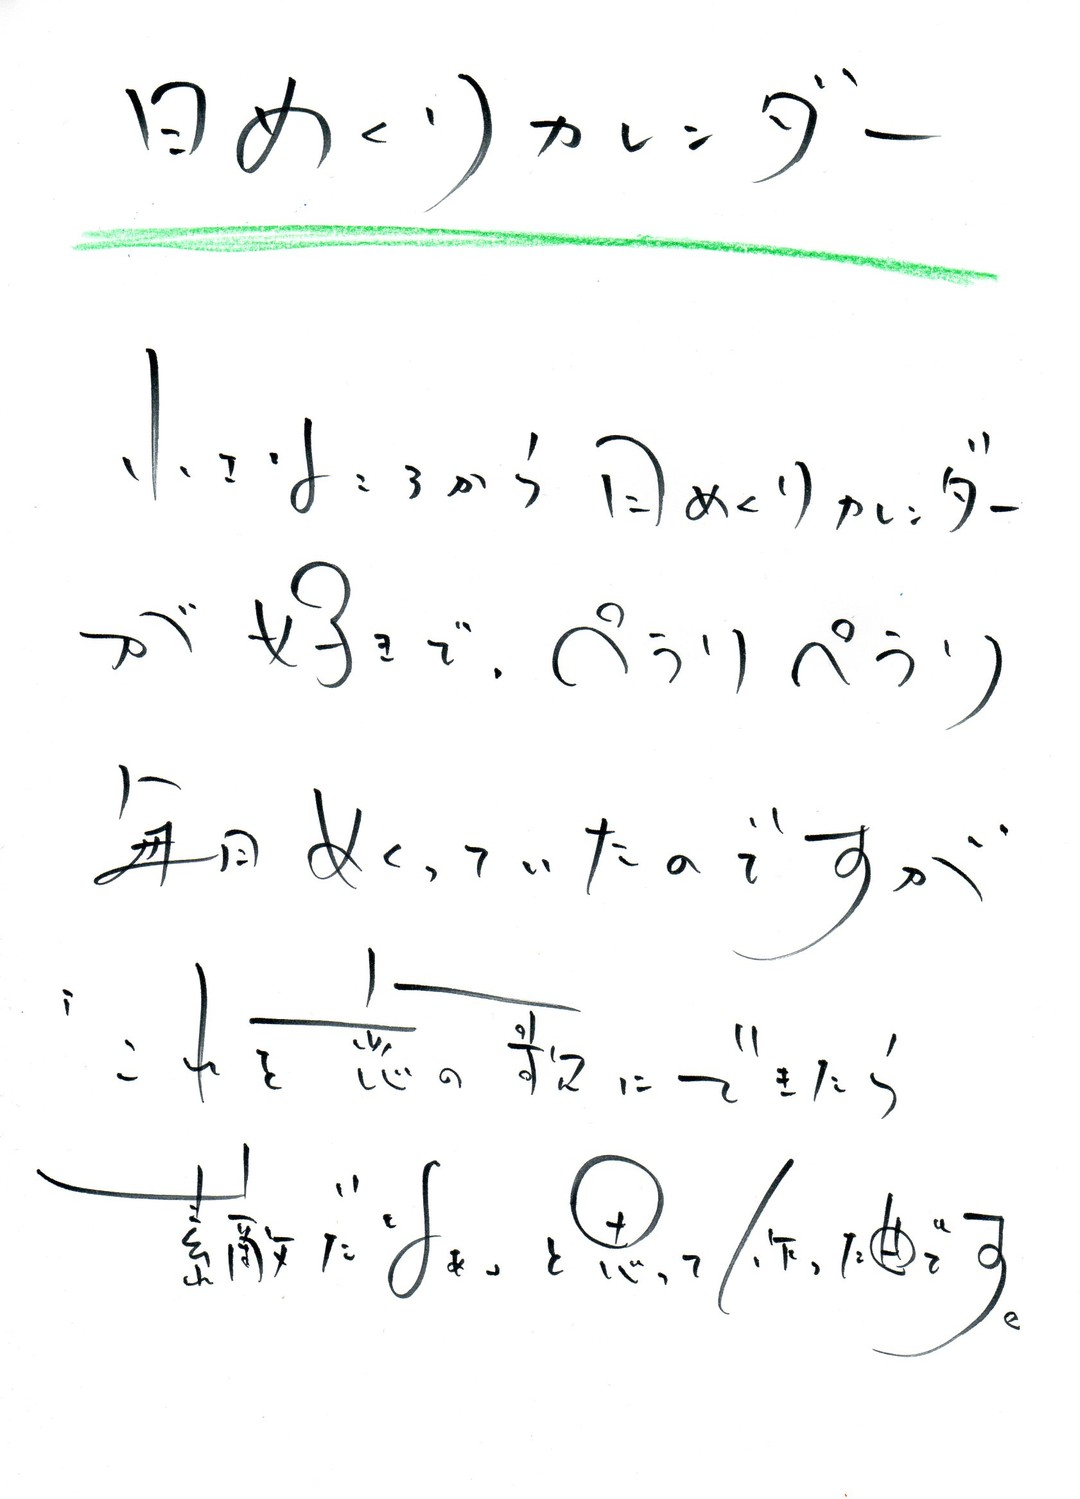 日めくりカレンダー
小さなころから 日めくりカレンダー
が 好きで、ペラリ ペラリ
毎日 めくっていたのですが
「これを 恋の 歌に できたら
素敵だなぁ」と 思って 作った曲です。